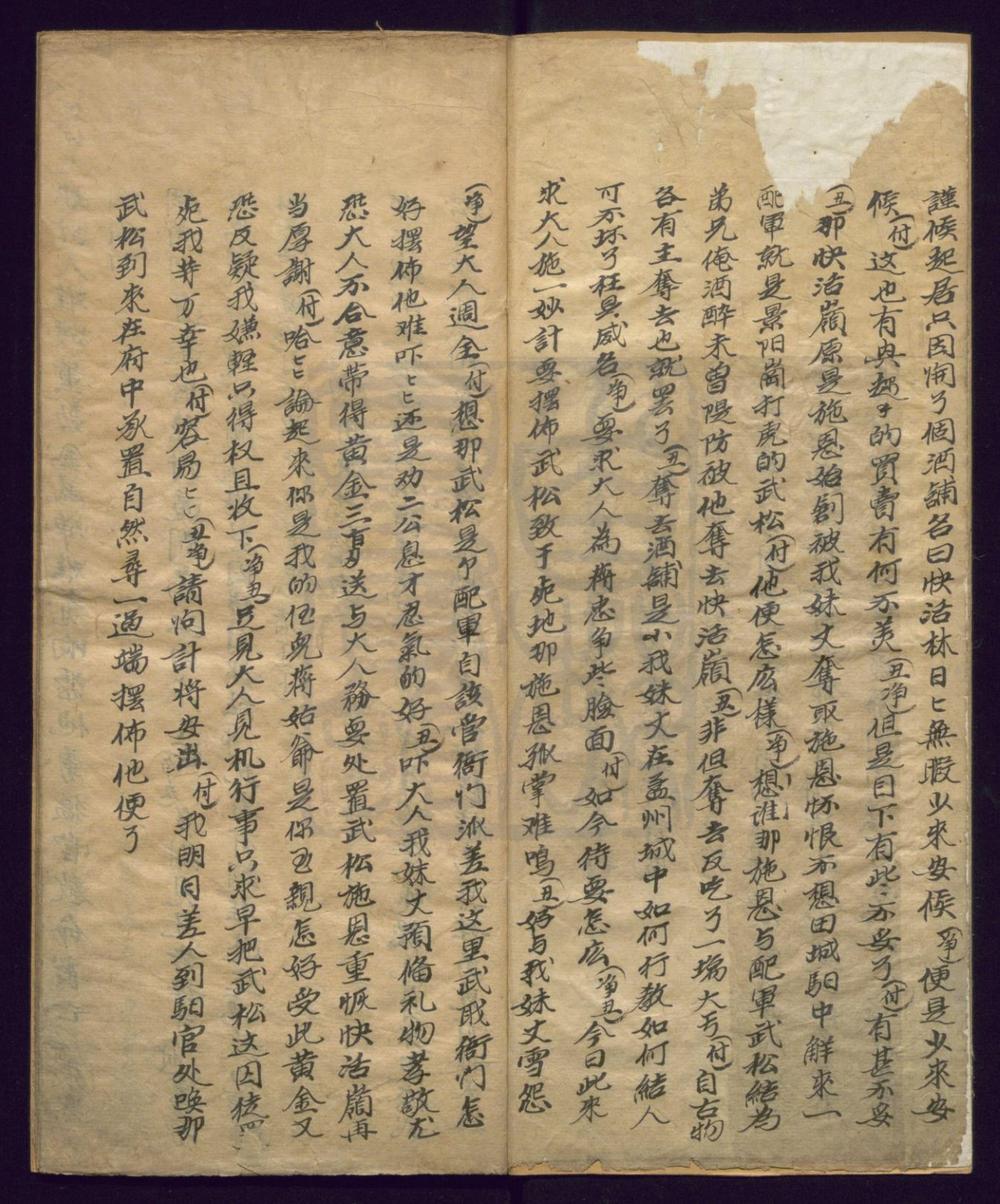 謹候起居只因開了個酒舖名曰快活林日匕無暇少來安候(净)便是少來安
候(付)这也有興趣的買賣有何不美(丑净)但是目下有些不妥了(付)有甚不妥
(丑)那快活嶺原是施恩始創被我妹丈奪取施恩怀恨不想田城馹中解來一
配軍就是景阳崗打虎的武松(付)他便怎庅樣(净)想誰那施恩与配軍武松結為
弟兄俺酒醉未曾隄防被他奪去快活嶺(丑)非但奪去反吃了一塲大亏(付)自古物
各有主奪去也就罢了(丑)奪去酒舖是小我妹丈在孟州城中如何行教如何結人
可不坏了枉具威名(净)要求大人為蔣忠争些臉面(付)如今待要怎庅(净丑)今日此來
求大人施一妙計要摆佈武松致于死地那施恩孤掌难鳴(丑)好与我妹丈雪怨
(净)望大人週全(付)想那武松是个配軍自該管衙门派差我这里武职衙门怎
好摆佈他难吓匕匕还是劝二公息才忍氣的好(丑)吓大人我妹丈預偹礼物孝敬尤
恐大人不合意帶得黄金三百刄送与大人務要处置武松施恩重恢快活嶺再
当厚謝(付)哈匕匕論起來你是我的侄兒蔣姑爺是你至親怎好受此黄金又
恐反疑我嫌輕只得权且收下(净丑)足見大人見机行事只求早把武松这囚徒
死我等万幸也(付)容易匕匕(丑净)請问計將安出(付)我明日差人到馹官处唤那
武松到來在府中承置自然尋一過端摆佈他便了